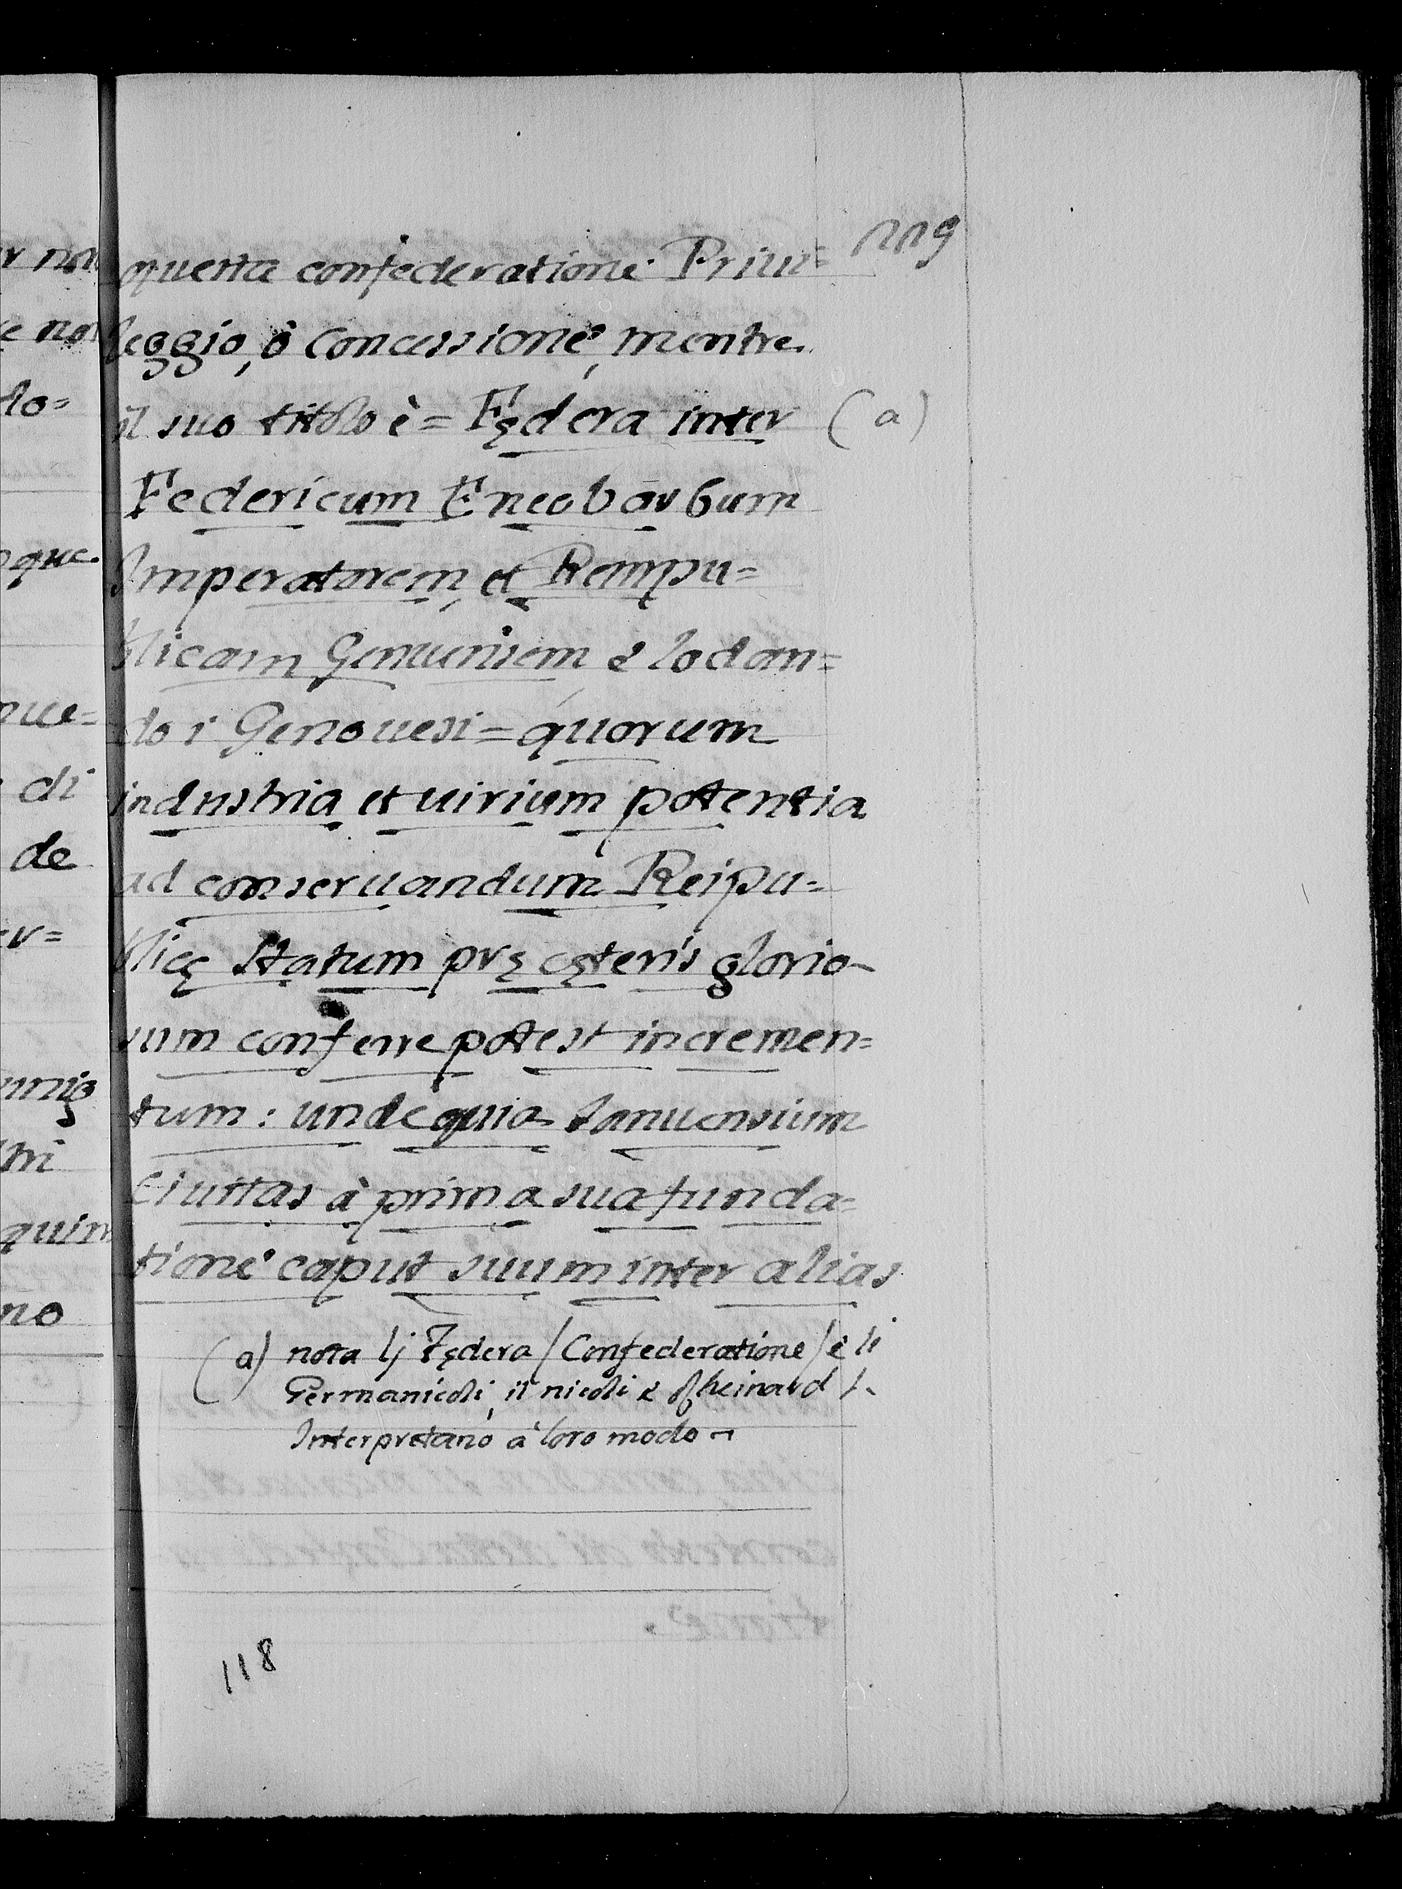 119
questa confederatione Priui=
leggio, ò Concessione, mentre
il suo titolo è = Fędera inter (a)
Federicum Eneobarbum
Imperatorem, et Rempu=
blicam Genuensem è lodan=
do i Genouesi = quorum
industria et uirium potentia
ad conseruandum Reipu=
blicę Statum prę cęteris glorio-
sum conferre potest incremen=
tum: unde quia Ianuensium
Ciuitas à prima sua funda=
tione caput suum inter alias
(a) nota lj Fędera / Confederatione / è li
Germanicoli, il nicoli è
Interpretano à loro modo
118